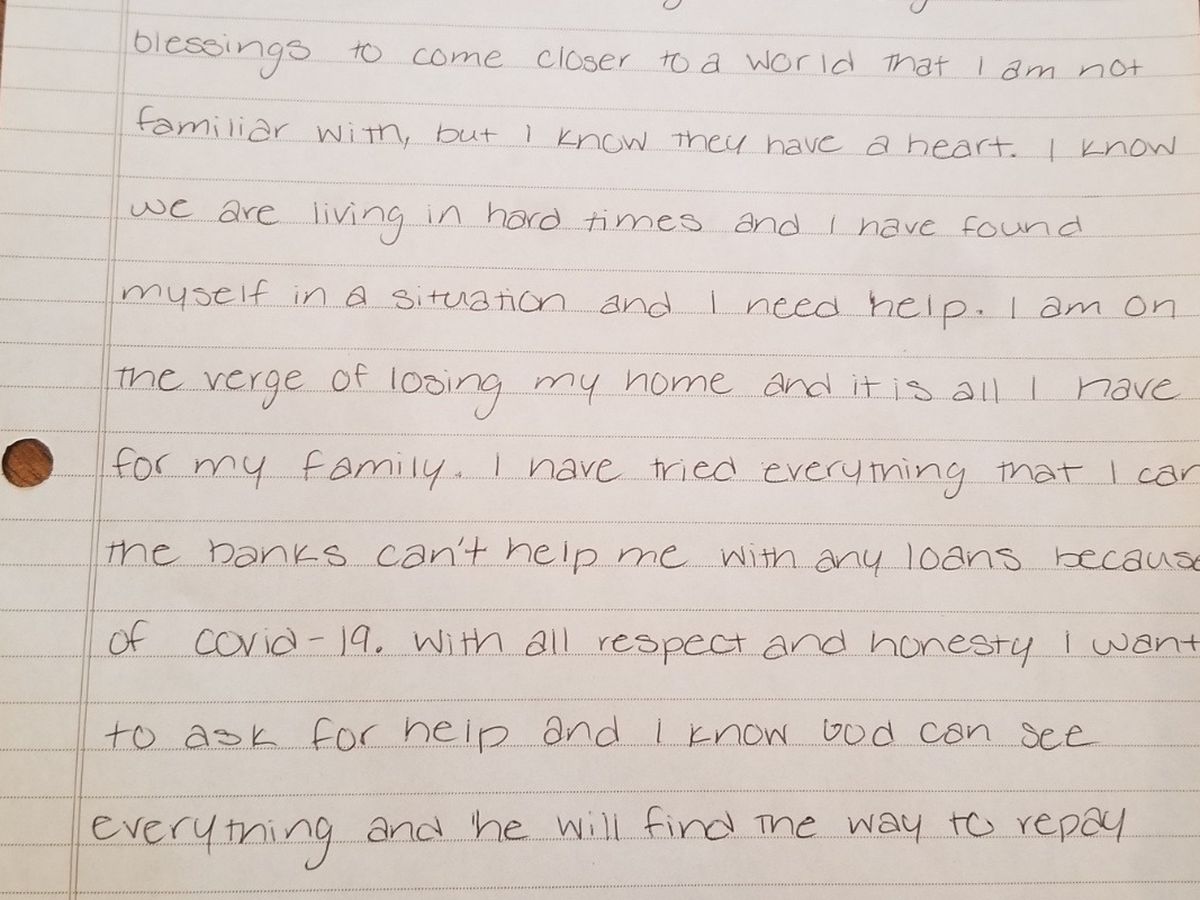 blessings to come closer to a world that I am not
familiar with, but I know they have a heart. I know
we are living in hard times and I have found
myself in a situation and I need help. I am on
the verge of losing my home and it is all I have
for my family. I have tried everything that I can
the banks can't help me with any loans because
of covid-19. With all respect and honesty I want
to ask for help and I know God can see
everything and he will find the way to repay